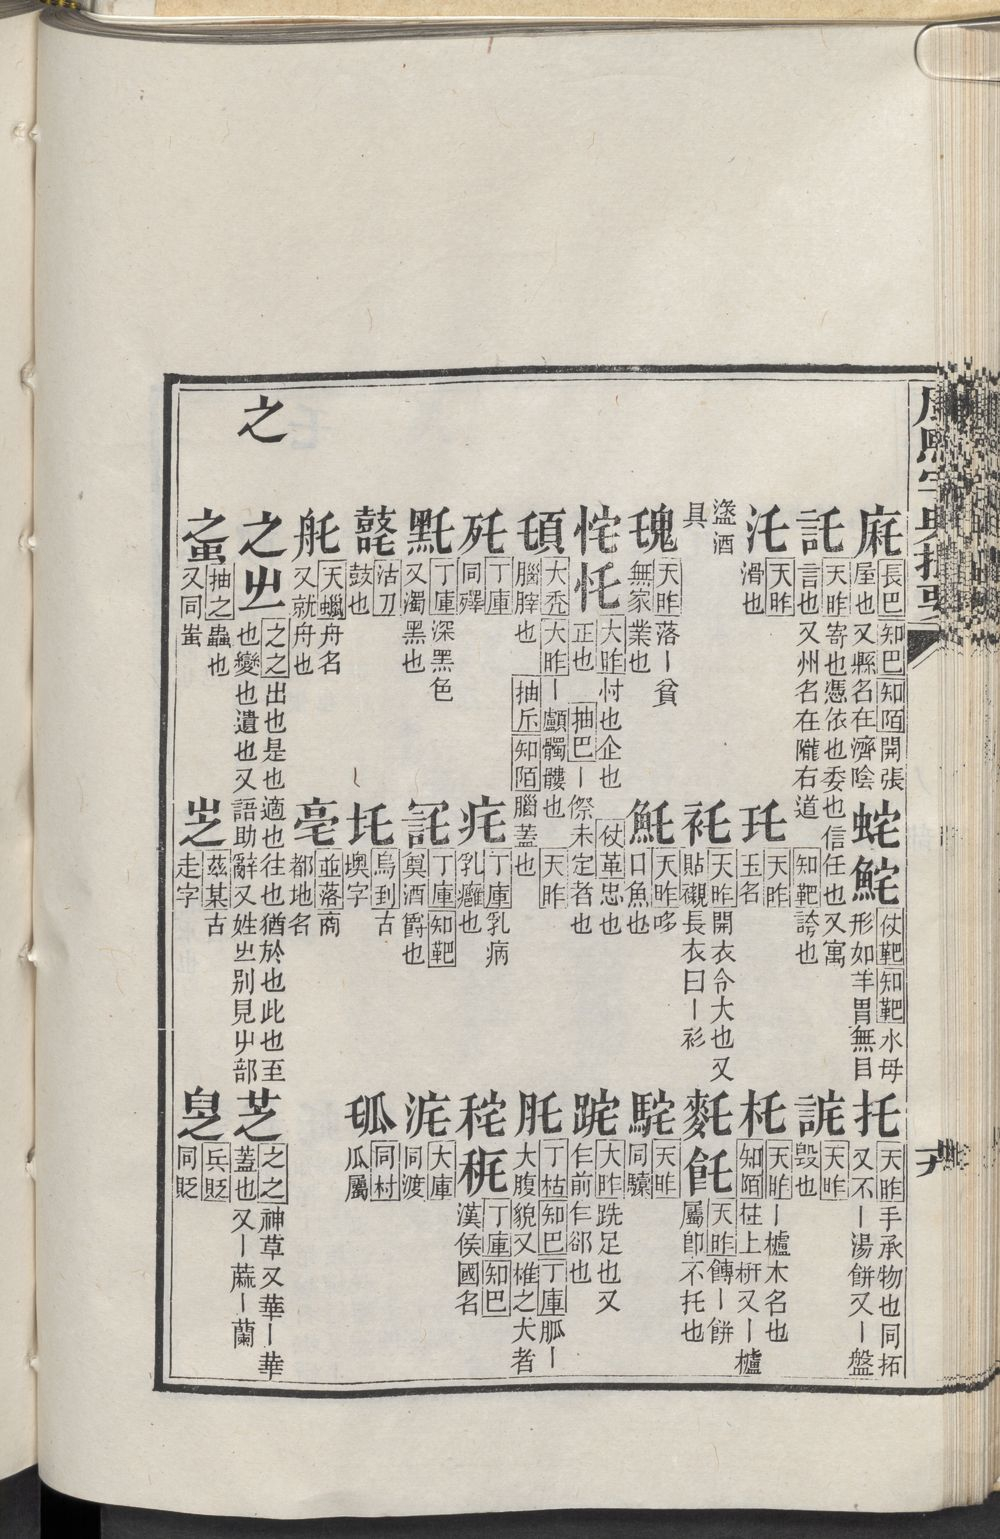 康熙字典撮要
麻 長巴 知巴 知陌 開張屋也又縣名在濟陰
蛇 鮀 仗䩗 知䩗 水母形如羊胃無目
托 天昨 手承物也同拓又不丨湯餅又丨盤
託 天昨 寄也憑依也委也信任也又寓言也又州名在隴右道
詫 天昨 毀也
汑 天昨 滑也
�Y 天昨 玉名
杔 天昨 知陌 丨櫨木名也柱上枅又丨櫨
盞酒具
衦 天昨 開衣令大也又貼襯長衣曰丨衫
飥 天昨 餺丨餅屬卽不托也
天昨 落丨貧無家業也
魠 天昨 哆口魚也
駝 天昨 同驝
侘 忏 大昨 忖也企也正也 抽巴 丨傺未定者也
仗革 忠也
跎 大昨 跣足也又乍前乍郤也
大禿 大昨 丨顱髑髏也腦脺也 抽斥 知陌 腦蓋也
天昨
肚 丁枯 知巴 丁庫 胍丨大腹貌又椎之大者
丁庫 同殬
丁庫 乳病乳癰也
秅 丁庫 知巴 漢侯國名
丁庫 深黑色又濁黑也
丁庫 知䩗 奠酒爵也
大庫 同渡
沽刀 鼓也
烏到 古墺字
同村 瓜屬
天蠟 舟名又就舟也
亳 並落 商都地名
之
之 㞢 之之 出也是也適也往也猶於也此也至也變也遺也又語助辭又姓㞢别見屮部
芝 之之 神草又華丨華蓋也又丨蔴丨蘭
抽之 蟲也又同蚩
茲某 古走字
兵貶 同貶